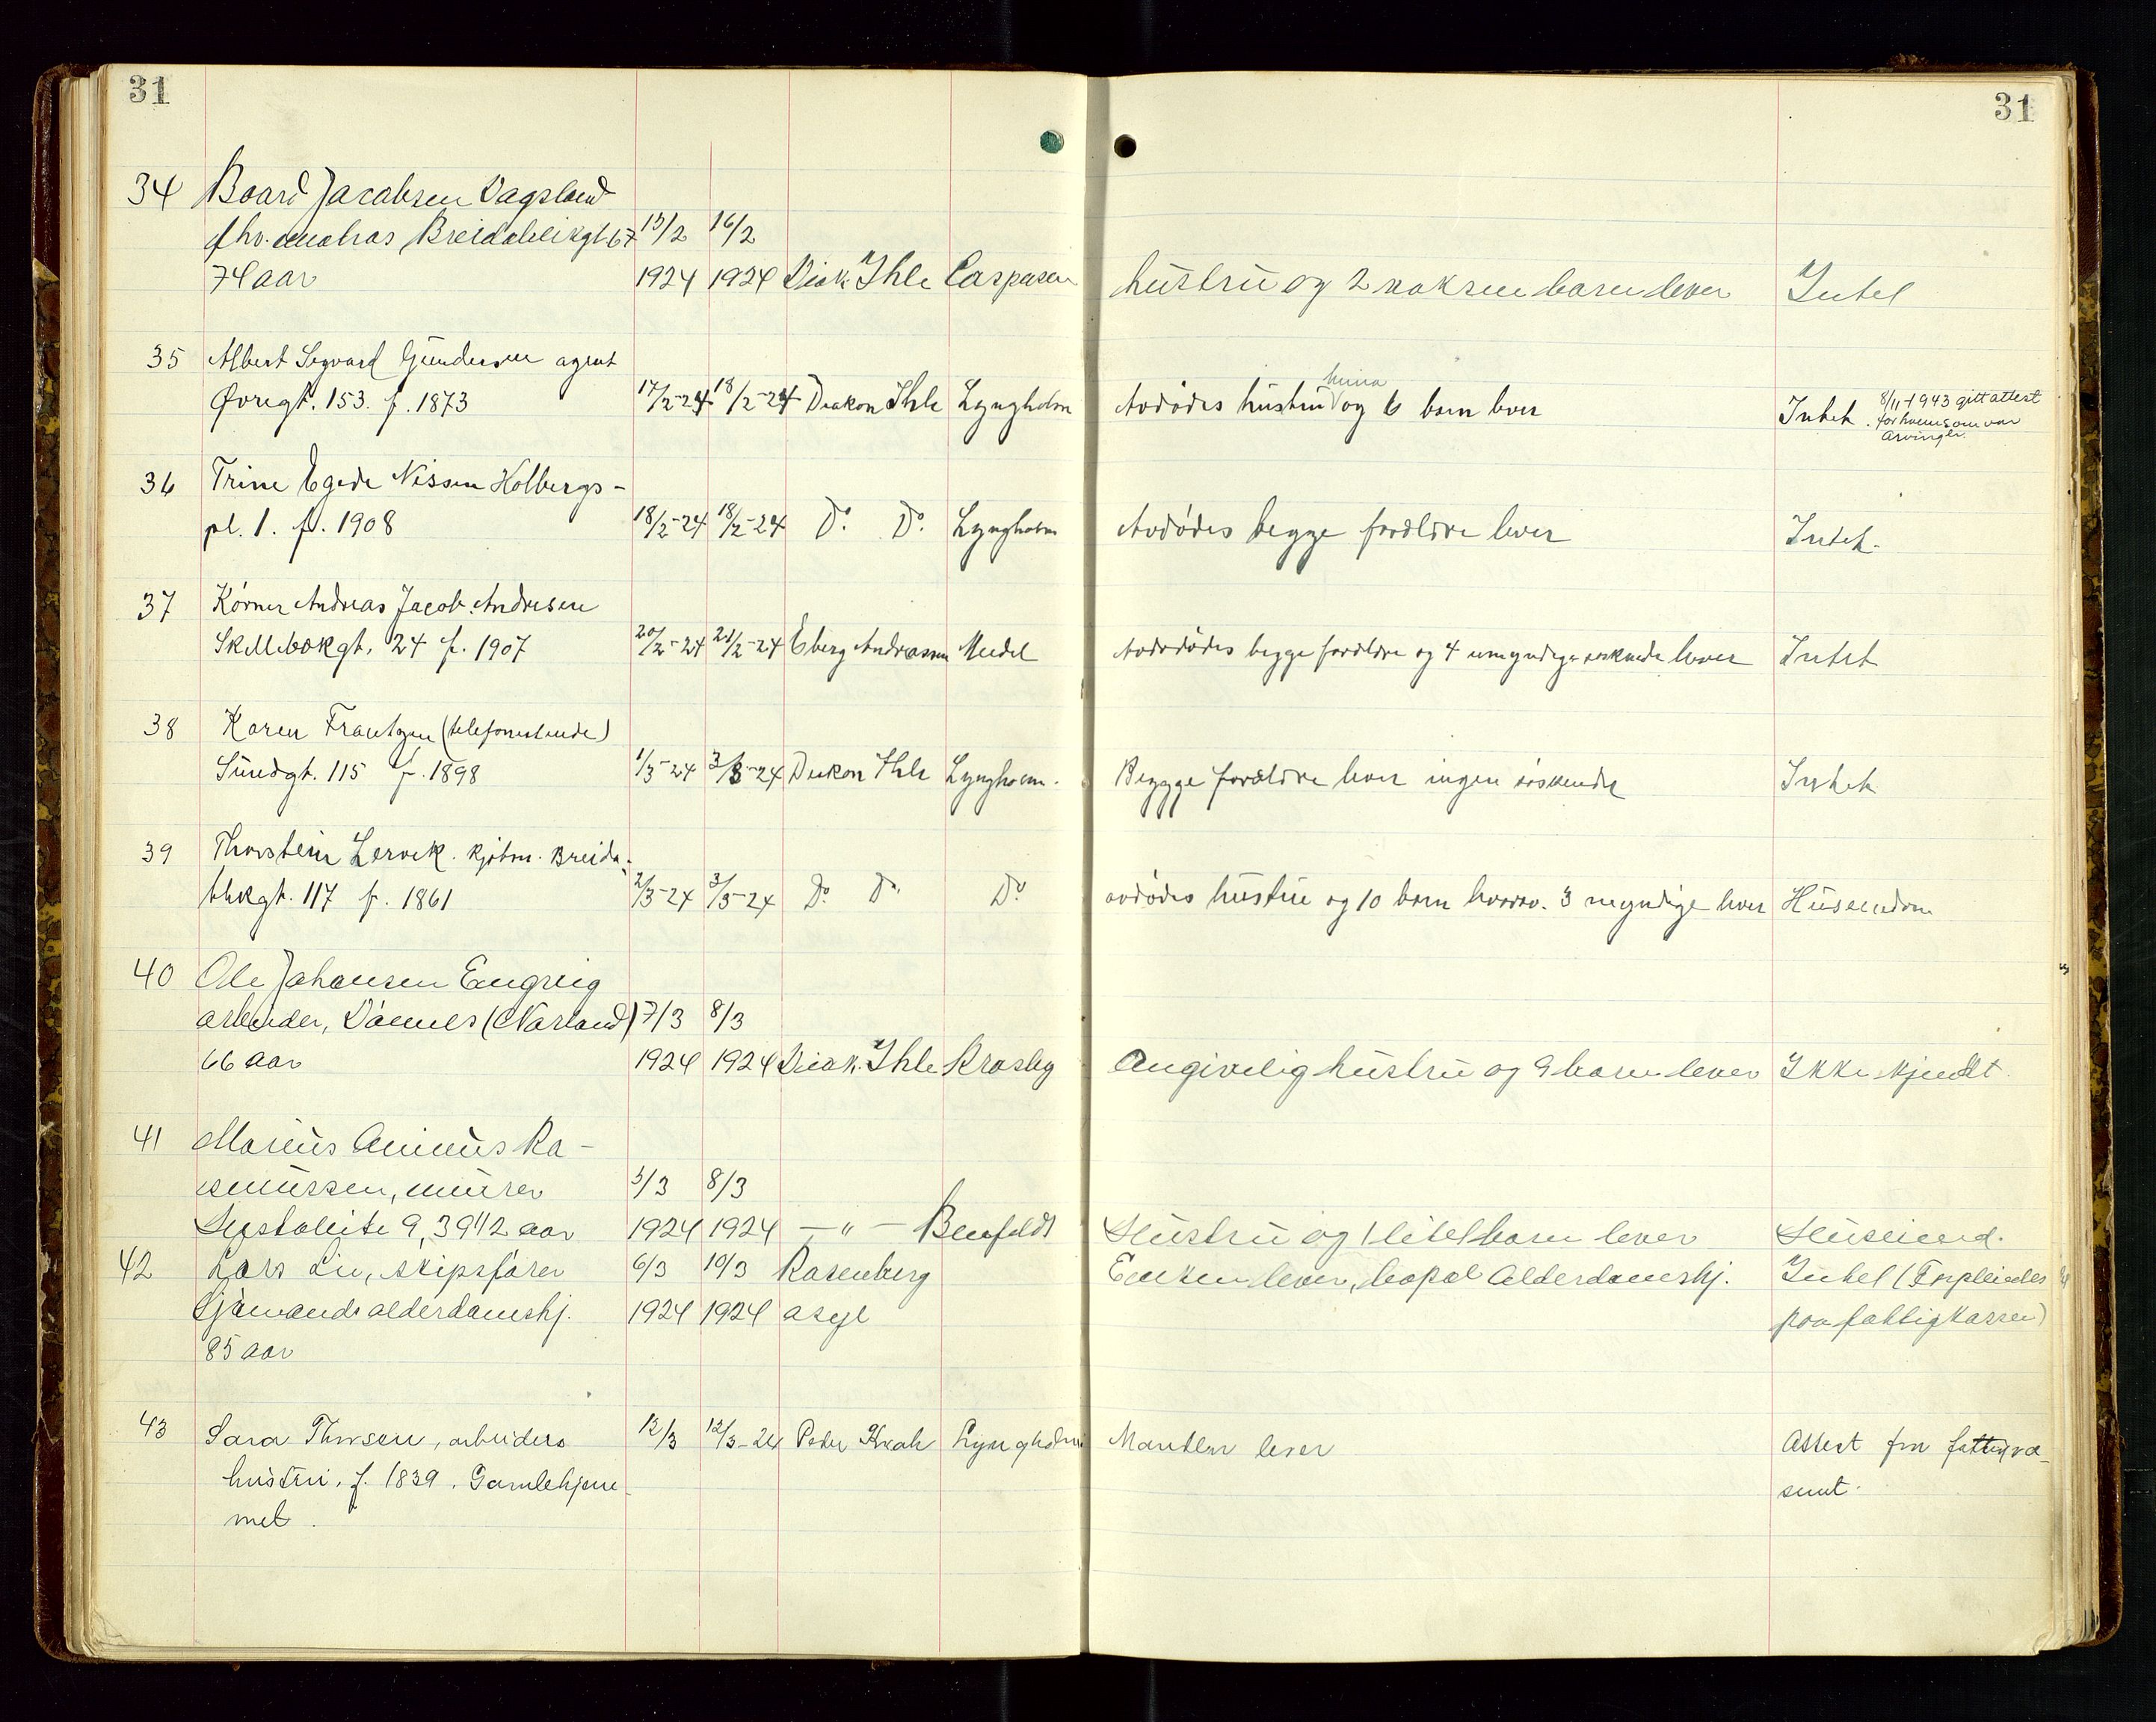 31
31
34 Baard Jacobsen Vagsland
fhv. matros Breidablikgt 67 15/2 16/2
74 aar 1924 1924 Diak. Ihle Caspersen hustru og 2 voksne barn lever Intet
35 Albert Sigvard Gundersen agent
Øvregt. 153. f. 1873 17/2-24 18/2-24 Diakon Ihle Lyngholm Avdødes hustru og 6 barn lever Intet. 8/11-1943 gitt attest
for hvem som var
Arvinger.
36 Trine Egede Nissen Holbergs-
pl. 1. f. 1908 18/2-24 18/2-24 Do. Do. Lyngholm Avdødes begge forældre lever Intet.
37 Körner Andreas Jacob Andresen
Skillebekgt. 24 f. 1907 20/2-24 21/2-24 Eberg Andreassen Meidel Avdødes begge forældre og 4 umyndige søskende lever Intet
38 Karen Frantzen (telefonistinde)
Sundgt. 115 f. 1898 1/3-24 3/3-24 Diakon Ihle Lyngholm. Begge forældre lever ingen søskende Intet
39 Thorstein Lervik. kjøbm. Breida-
blikgt. 117 f. 1861 2/3-24 3/3-24 Do. Do. Do. avdødes hustru og 10 barn hvorav. 3 umyndige lever Huseiendom
40 Ole Johansen Engreig
arbeider, Dønnes (Norland) 7/3 8/3
66 aar 1924 1924 Diak. Ihle Krosby Angivelig hustru og 9 barn lever Ikke kjendt.
41 Marius Animus Ra-
smussen, murer 5/3 8/3
9, 39 1/2 aar 1924 1924 —"— Benfeldt Hustru og 1 litet barn lever Huseiend.
42 Lars Lie, skipsfører 6/3 10/3 Rosenberg Enken lever, bopæl Alderdomshj. Intet (Forpleiedes
Sjømands alderdomshj. 1924 1924 asyl paa fattigkassen)
85 aar
43 Sara Thorsen, arbeiders 12/3 12/3-24 Peder Lyngholm Manden lever Attest fra fattigvæ-
hustru. f. 1839. Gamlehjem- senet.
met.